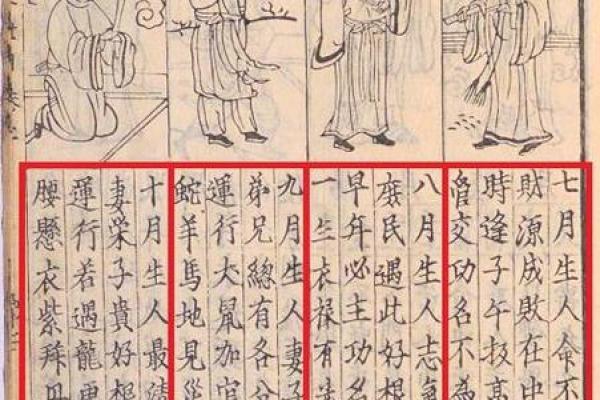 七月生人命不
財源成敗在中
時逢子午技高
交功名不為
八月生人志氣
庶民遇此好根
早年必主功名
一生衣祿有
九月生人妻子
弟兄總有各分
運行犬鼠加官
蛇羊馬地見災
十月生人最清
妻榮子貴好根
運行若遇龍
腰懸衣紫拜